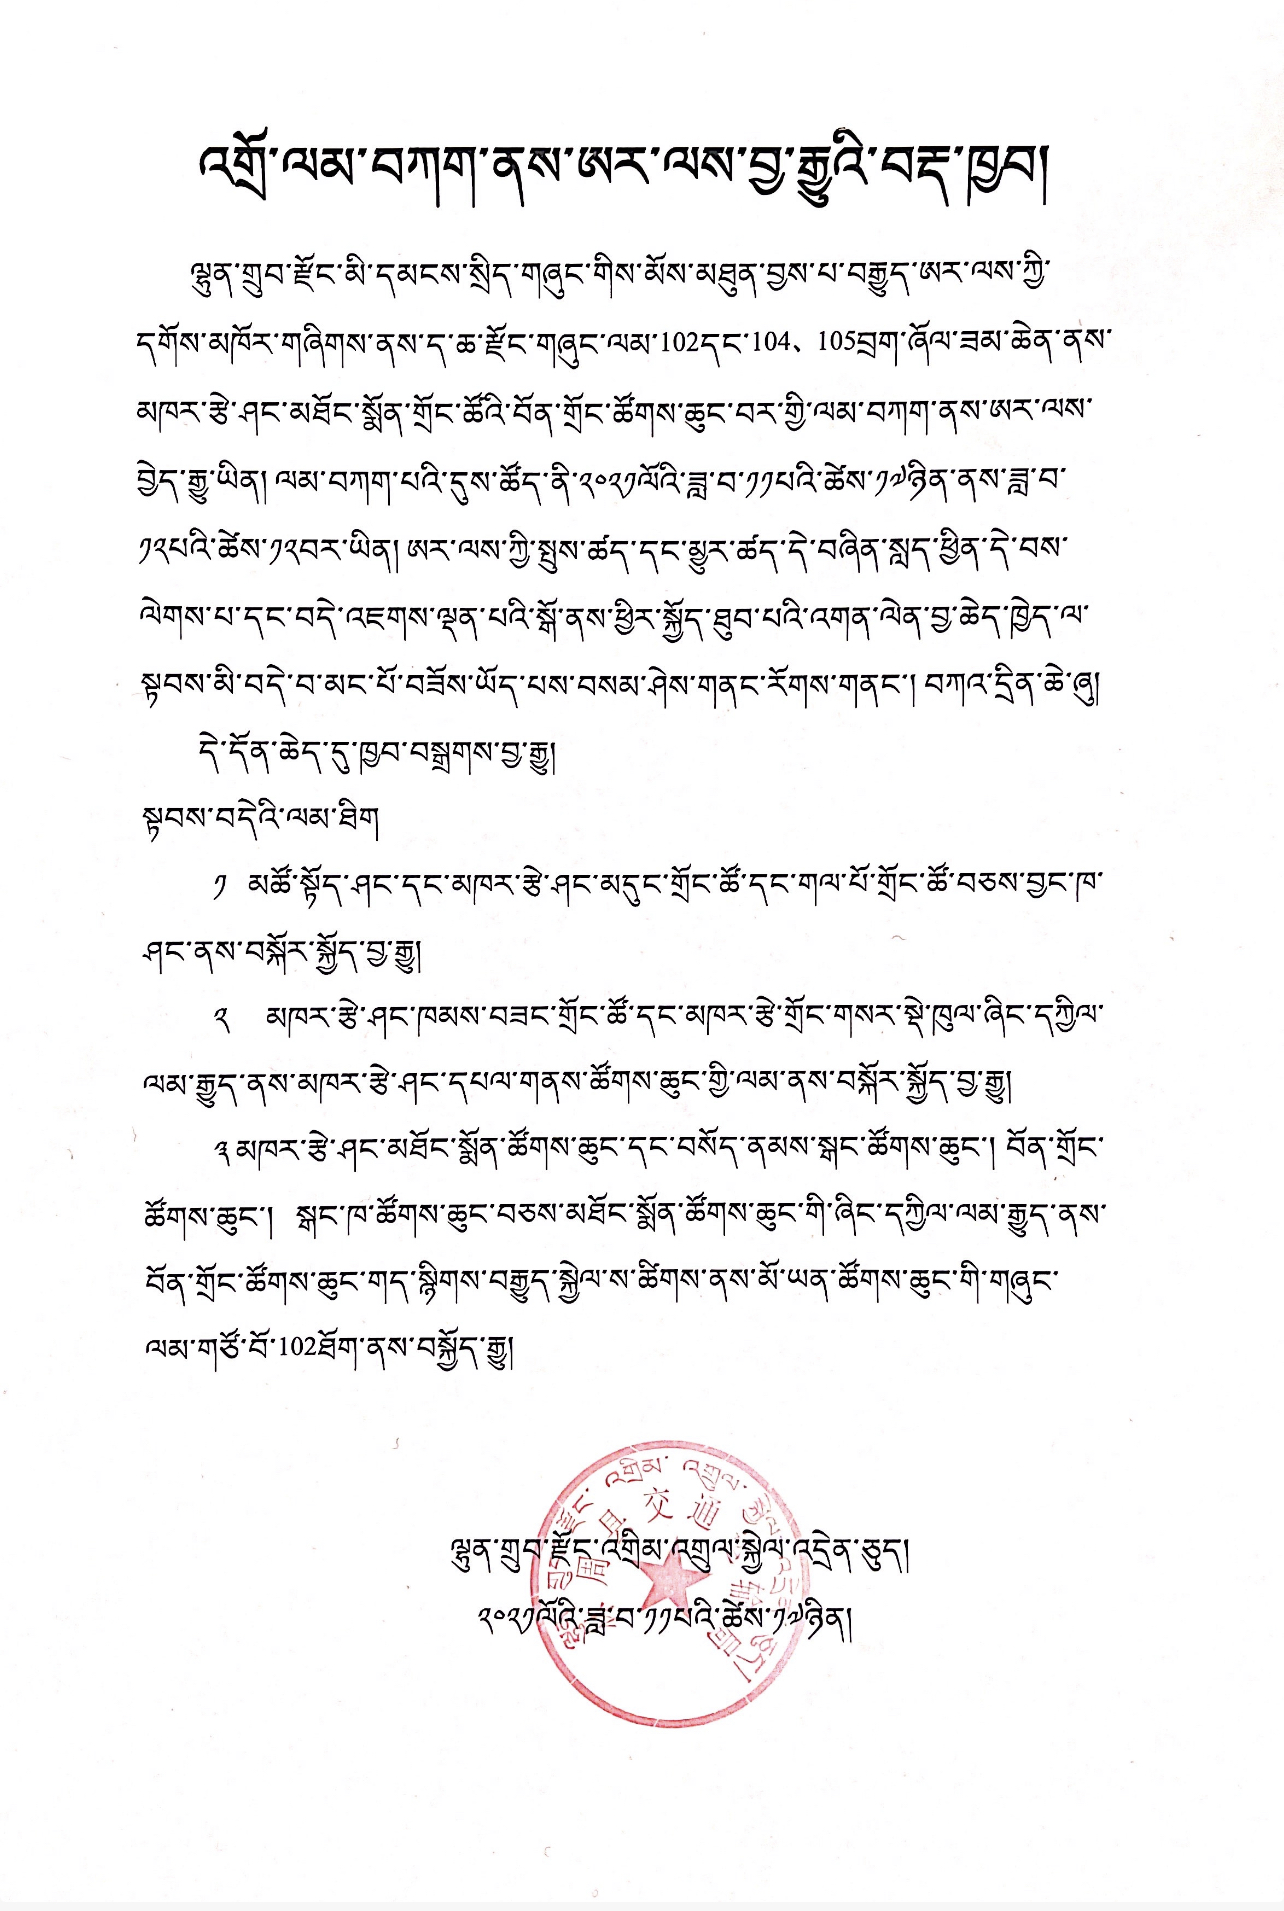 འགྲོ་ལམ་བཀག་ནས་ཨར་ལས་བྱ་རྒྱུའི་བརྡ་ཁྱབ།
ལྷུན་གྲུབ་རྫོང་མི་དམངས་སྲིད་གཞུང་གིས་མོས་མཐུན་བྱས་པ་བརྒྱུད་ཨར་ལས་ཀྱི་
དགོས་མཁོར་གཞིགས་ནས་ད་ཆ་རྫོང་གཞུང་ལམ་102དང་104、105བྲག་ཞོལ་ཟམ་ཆེན་ནས་
མཁར་རྩེ་ཤང་མཐོང་སྨོན་གྲོང་ཚོའི་བོན་གྲོང་ཚོགས་ཆུང་བར་གྱི་ལམ་བཀག་ནས་ཨར་ལས་
བྱེད་རྒྱུ་ཡིན། ལམ་བཀག་པའི་དུས་ཚོད་ནི་༢༠༢༡ལོའི་ཟླ་བ་༡༡པའི་ཚེས་༡༧ཉིན་ནས་ཟླ་བ་
༡༢པའི་ཚེས་༡༢བར་ཡིན། ཨར་ལས་ཀྱི་སྤུས་ཚད་དང་མྱུར་ཚད་དེ་བཞིན་སླད་ཕྱིན་དེ་བས་
ལེགས་པ་དང་བདེ་འཇགས་ལྡན་པའི་སྒོ་ནས་ཕྱིར་སྐྱོད་ཐུབ་པའི་འགན་ལེན་བྱ་ཆེད་ཁྱེད་ལ་
སྟབས་མི་བདེ་བ་མང་པོ་བཟོས་ཡོད་པས་བསམ་ཤེས་གནང་རོགས་གནང་། བཀའ་དྲིན་ཆེ་ཞུ།
དེ་དོན་ཆེད་དུ་ཁྱབ་བསྒྲགས་བྱ་རྒྱུ།
སྟབས་བདེའི་ལམ་ཐིག
༡ མཚོ་སྟོད་ཤང་དང་མཁར་རྩེ་ཤང་མདུང་གྲོང་ཚོ་དང་གལ་པོ་གྲོང་ཚོ་བཅས་བྱང་ཁ་
ཤང་ནས་བསྐོར་སྐྱོད་བྱ་རྒྱུ།
༢ མཁར་རྩེ་ཤང་ཁམས་བཟང་གྲོང་ཚོ་དང་མཁར་རྩེ་གྲོང་གསར་སྡེ་ཁུལ་ཞིང་དཀྱིལ་
ལམ་རྒྱུད་ནས་མཁར་རྩེ་ཤང་དཔལ་གནས་ཚོགས་ཆུང་གྱི་ལམ་ནས་བསྐོར་སྐྱོད་བྱ་རྒྱུ།
༣ མཁར་རྩེ་ཤང་མཐོང་སྨོན་ཚོགས་ཆུང་དང་བསོད་ནམས་སྒང་ཚོགས་ཆུང་། བོན་གྲོང་
ཚོགས་ཆུང་། སྒང་ཁ་ཚོགས་ཆུང་བཅས་མཐོང་སྨོན་ཚོགས་ཆུང་གི་ཞིང་དཀྱིལ་ལམ་རྒྱུད་ནས་
བོན་གྲོང་ཚོགས་ཆུང་གད་སྙིགས་བརྒྱུད་སྐྱེལ་ས་ཚིགས་ནས་མོ་ཡན་ཚོགས་ཆུང་གི་གཞུང་
ལམ་གཙོ་བོ་102ཐོག་ནས་བསྐྱོད་རྒྱུ།
ལྷུན་གྲུབ་རྫོང་འགྲིམ་འགྲུལ་སྐྱེལ་འདྲེན་ཅུད།
༢༠༢༡ལོའི་ཟླ་བ་༡༡པའི་ཚེས་༡༧ཉིན།